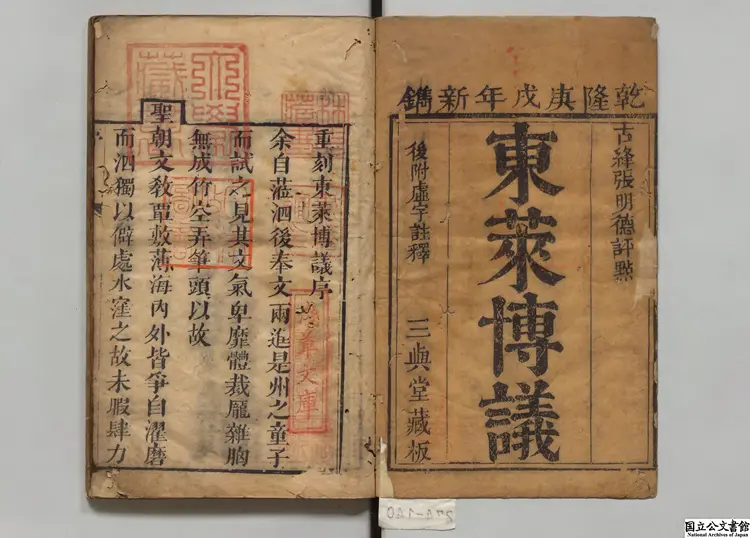 乾隆庚戌年新鐫
古絳張明德評點
東萊博議
後附虛字註釋
三與堂藏板
重刻東萊博議序
余自蒞泗後奉文兩進是州之童子
而試之見其文氣卑靡體裁厖雜胸
無成竹空弄筆頭以故
聖朝文教覃敷薄海內外皆爭自濯磨
而泗獨以僻處水窪之故未暇肆力
林氏藏書
淺草文庫
国立公文書館
National Archives of Japan